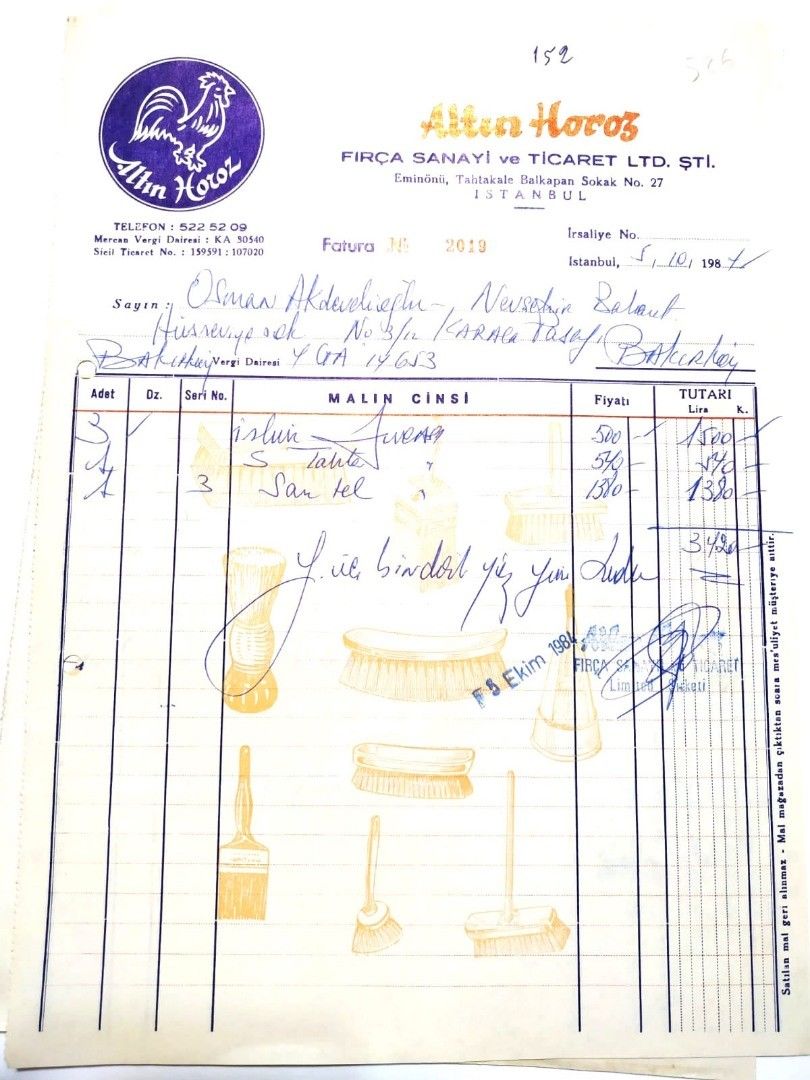 152
Altın Horoz
Altın Horoz
FIRÇA SANAYİ ve TİCARET LTD. ŞTİ.
Eminönü, Tahtakale Balkapan Sokak No. 27
İSTANBUL
TELEFON : 522 52 09
Mercan Vergi Dairesi : KA 30540
Sicil Ticaret No. : 159591 : 107020
Fatura № 2019
İrsaliye No.
İstanbul, 5, 10, 1984
Sayın : Osman
No 3/12
Bakırköy Vergi Dairesi 14653 Bakırköy
Adet Dz. Seri No. MALIN CİNSİ Fiyatı TUTARI
Lira K.
3 500 1500
1 S Tahta " 540 540
1 3 Sarı tel " 1380 1380
3420
Y. üç bin dört yüz yirmi liradır
5 Ekim 1984
FIRÇA SANAYİ VE TİCARET
Limited Şirketi
Satılan mal geri alınmaz - Mal mağazadan çıktıktan sonra mes'uliyet müşteriye aittir.